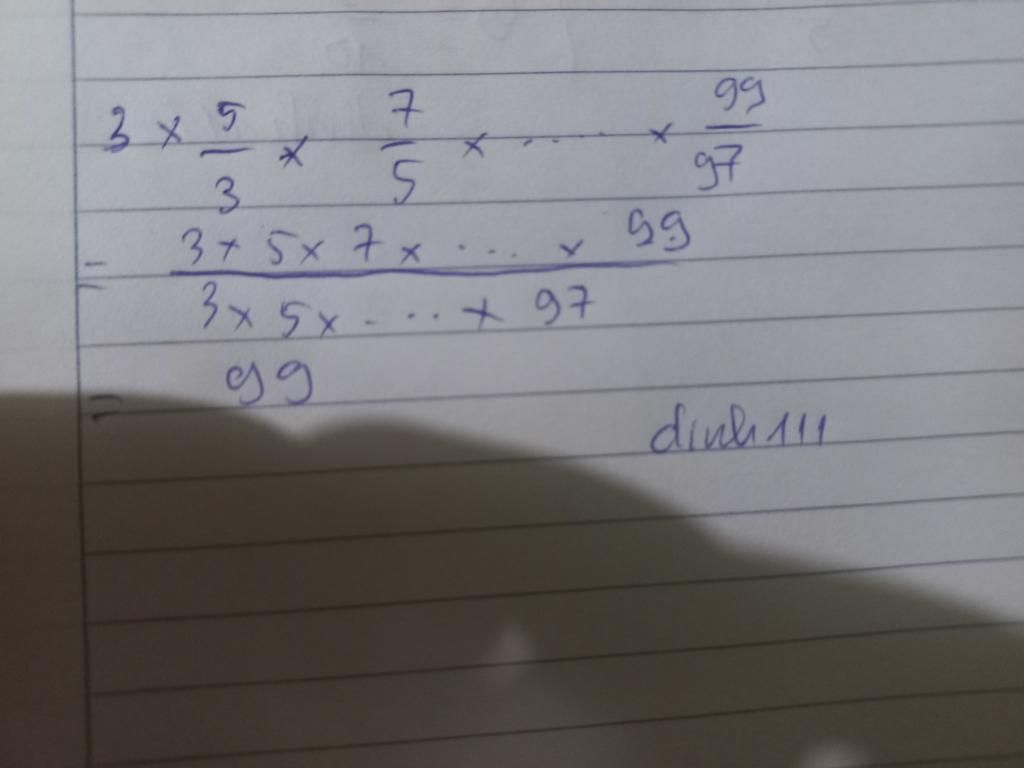 3 × 5/3 × 7/5 × ..... × 99/97
= 3 × 5 × 7 × .... × 99 / 3 × 5 × .... × 97
= 99
dinh111